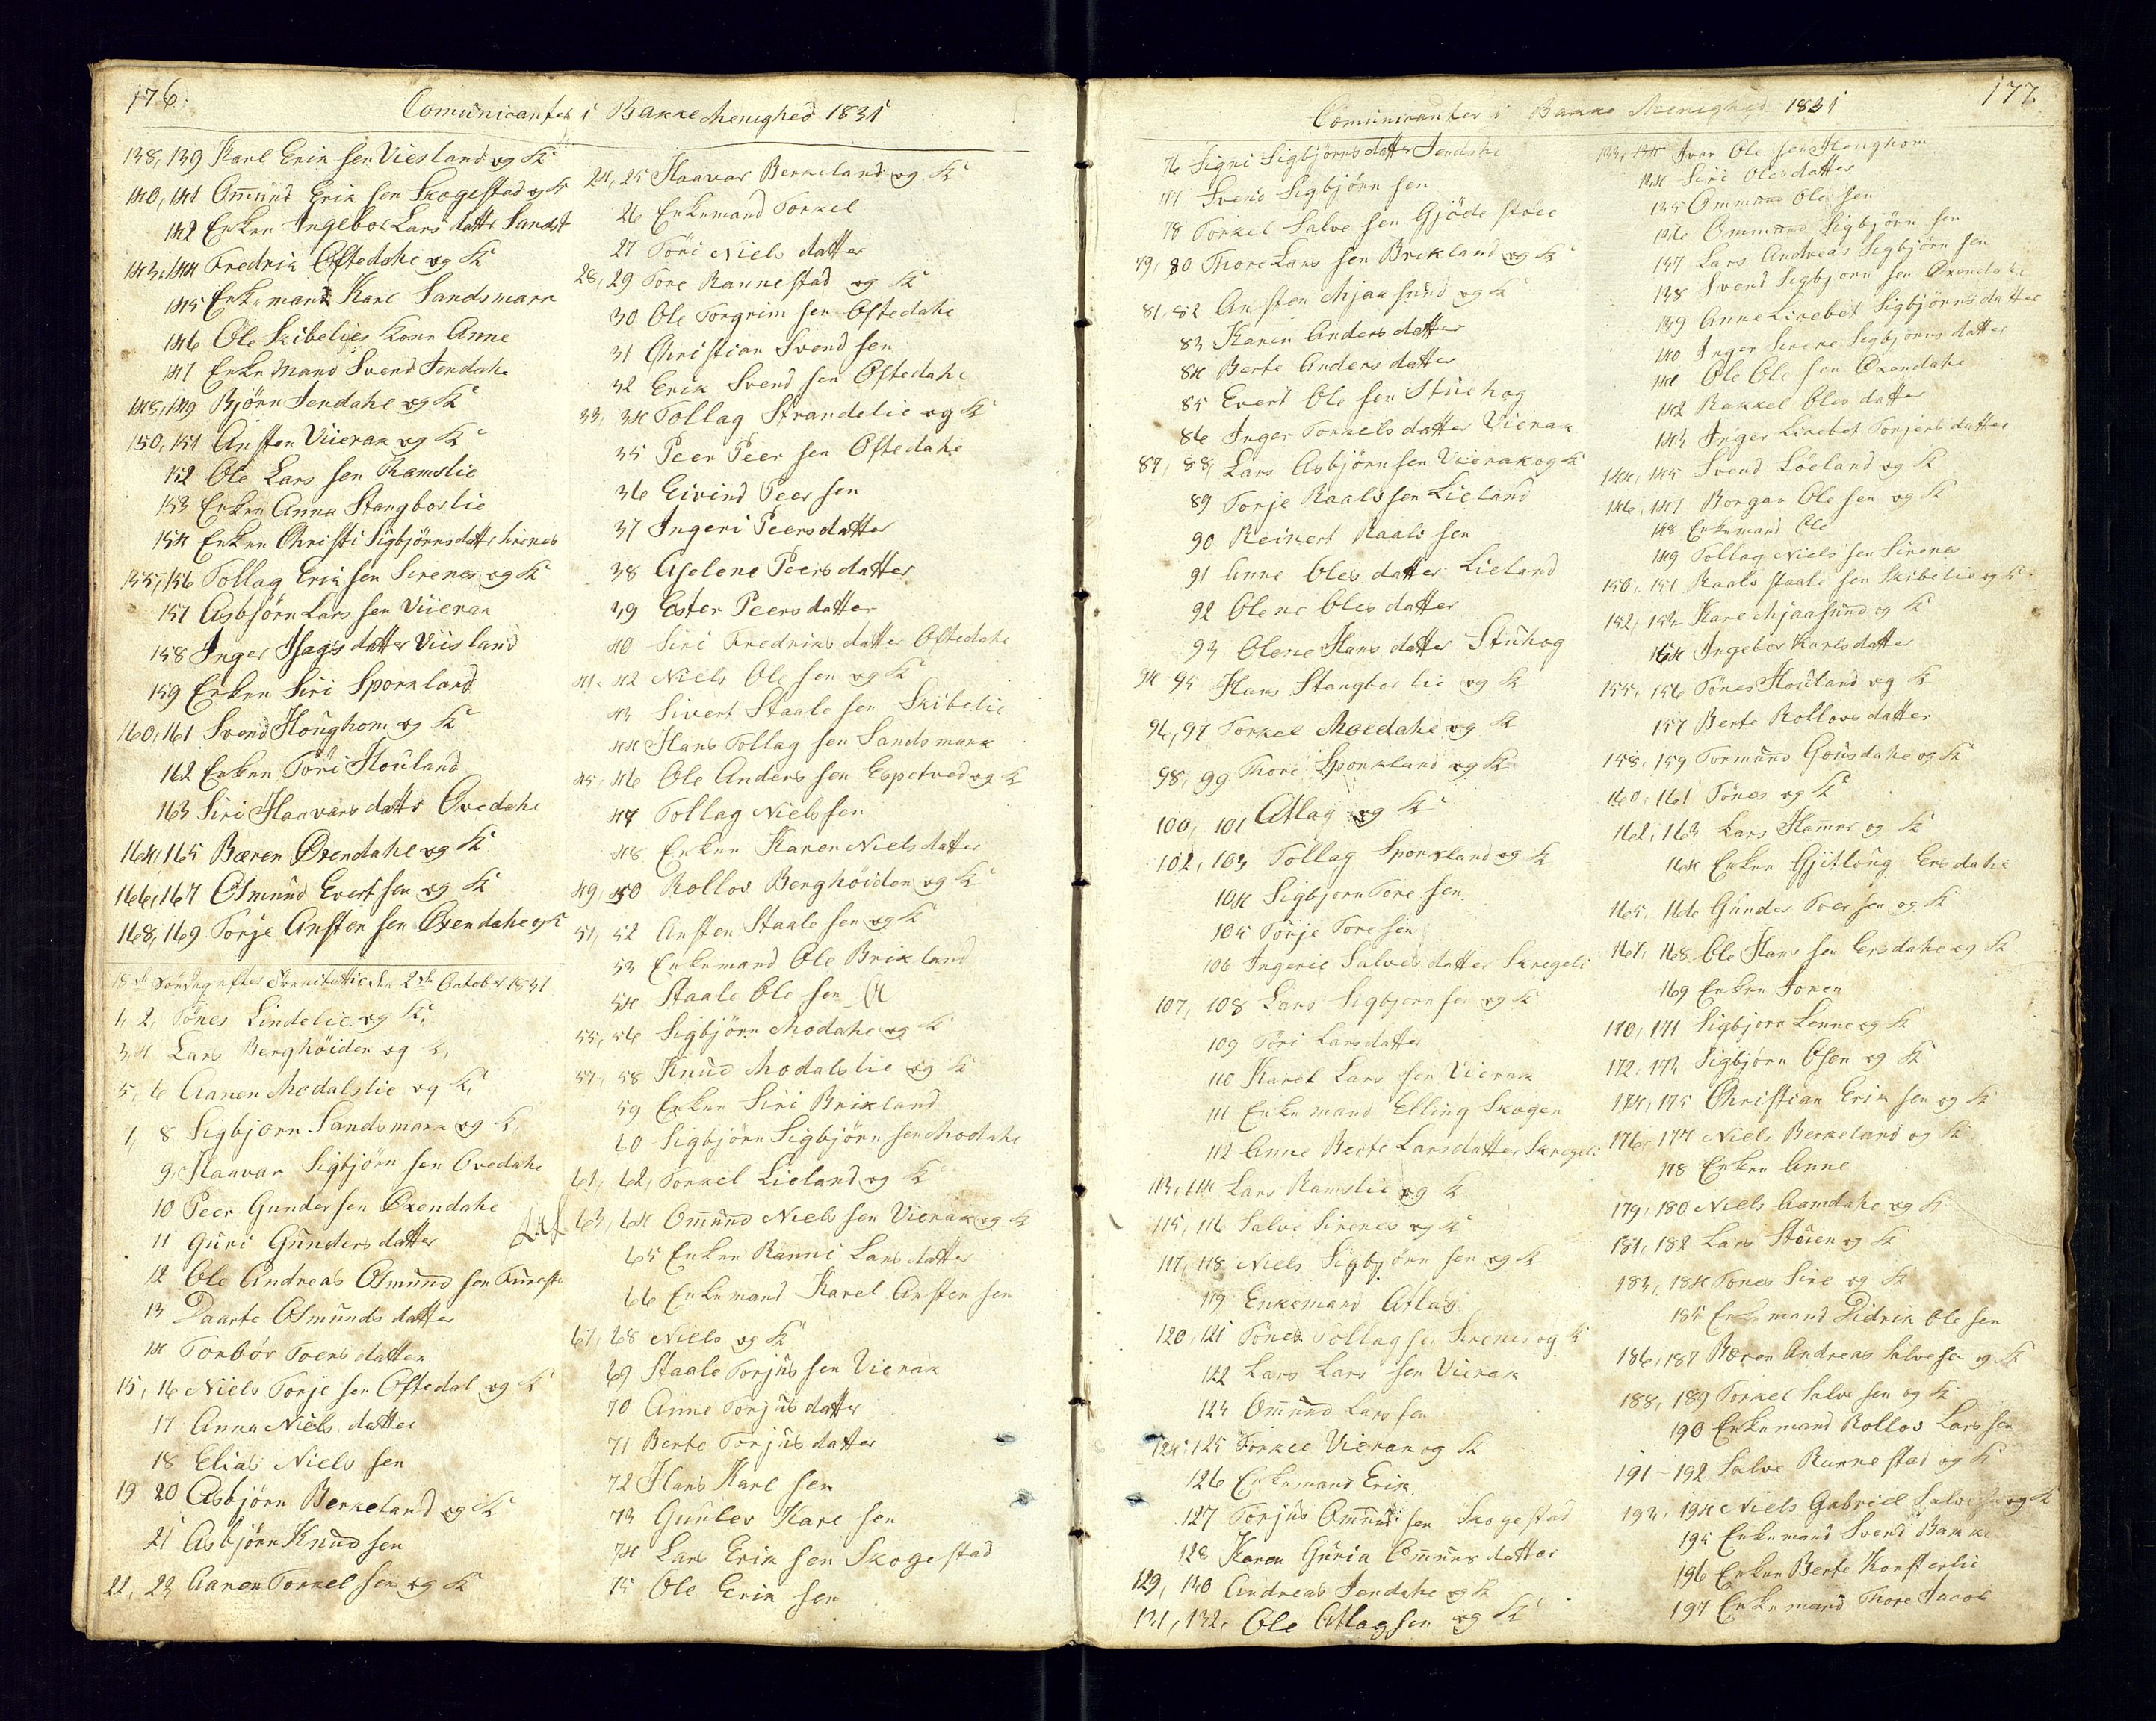 176.
Comunicanter i Bakke Menighed 1831
138, 139 Karl Erik sen Viesland og K
140, 141 Omund Erik sen Skogestad og K
142 Enken Ingebor Lars datter Sandst
143, 144 Fredrik Oftedahl og K
145 Enkemand Karl Sandsmark
146 Ole Skibelies Kone Anne
147 Enkemand Svend Jendahl
148, 149 Bjørn Jendahl og K
150, 151 Ansten Viierak og K
152 Ole Lars sen Ramslie
153 Enken Anna Stangborlie
154 Enken Christi Sigbjørnsdatter Sirenes
155, 156 Tollag Erik sen Sirenes og K
157 Asbjørn Lars sen Viierak
158 Inger Isags datter Viisland
159 Enken Siri Sporkland
160, 161 Svend Houghom og K
162 Enken Töri Houland
163 Siri Haavars datter Ovedahl
164, 165 Bæren Oxendahl og K
166, 167 Osmund Evert sen og K
168, 169 Torje Ansten sen Oxendahl og K
18de Søndag efter Trinitatis den 2den October 1831
1, 2, Tönes Lindelie og K,
3, 4 Lars Berghöiden og K,
5, 6 Aanen Modalslie og K,
7, 8 Sigbjørn Sandsmark og K,
9, Haavar Sigbjørn sen Ovedahl
10 Peer Gunder sen Oxendahl
11 Guri Gunders datter
12 Ole Andreas Osmund sen
13 Daarte Osmunds datter
14 Torbör Toers datter
15, 16 Niels Torje sen Oftedal og K
17 Anna Niels datter
18 Elias Niels sen
19 20 Asbjørn Berkeland og K
21 Asbjørn Knud sen
22, 23 Aanen Torkel sen og K
24, 25 Haavar Berkeland og K
26 Enkemand Torkel
27 Töri Niels datter
28, 29 Tore Rannestad og K
30 Ole Torgrim sen Oftedahl
31 Christian Svend sen
32 Erik Svend sen Oftedahl
33, 34 Tollag Strandelie og K
35 Peer Peer sen Oftedahl
36 Eivind Peer sen
37 Ingeri Peersdatter
38 Aselene Peers datter
39 Ester Peers datter
40 Siri Fredriks datter Oftedahl
41, 42 Niels Ole sen og K
43 Sivert Staale sen Skibelie
44 Hans Tollag sen Sandsmark
45, 46 Ole Anders sen Espetved og K
47 Tollag Niels sen
48 Enken Karen Niels datter
49, 50 Rollov Berghöiden og K
51, 52 Ansten Staale sen og K
53 Enkemand Ole Brikland
54 Staale Ole sen
55, 56 Sigbjørn Modahl og K
57, 58 Knud Modalslie og K
59 Enken Siri Brikland
60 Sigbjørn Sigbjørn sen Modahl
61, 62, Torkel Lieland og K
63, 64 Omund Niels sen Vierak og K
65 Enken Ranni Lars datter
66 Enkemand Karel Ansten sen
67, 68 Niels og K
69 Staale Torjus sen Vierak
70 Anne Torjus datter
71 Berte Torjus datter
72 Hans Karl sen
73 Gunlev Karl sen
74 Lars Erik sen Skogestad
75 Ole Erik sen
177
Comunicanter i Bakke Menighed 1831
76 Signi Sigbjørns datter Jendahl
77 Svend Sigbjørn sen
78 Torkel Salve sen Gjöde
79, 80 Thore Lars sen Brekland og K
81, 82 Ansten Mjaasund og K
83 Karen Anders datter
84 Berte Anders datter
85 Evert Ole sen Stuehog
86 Inger Torkels datter Vierak
87, 88, Lars Asbjørn sen Viierak og K
89 Torje Raals sen Lieland
90 Reinert Raals sen
91 Anne Oles datter Lieland
92 Olene Oles datter
93 Olene Hans datter Stuhog
94-95 Hans Stangborlie og K
96, 97 Torkel Moedahl og K
98, 99 Thore Sporkland og K
100, 101 Atlag og K
102, 103 Tollag Sporkland og K
104 Sigbjørn Tore sen
105 Torje Tore sen
106 Ingerie Salves datter Skregeli
107, 108 Lars Sigbjørn sen og K
109 Töri Lars datter
110 Karel Lars sen Vierak
111 Enkemand Elling Skogen
112 Anne Berte Larsdatter Skregeli
113, 114 Lars Ramslie og K
115, 116 Salve Sirenes og K
117, 118 Niels Sigbjørn sen og K
119 Enkemand Atlag
120, 121 Tönes Tollag sen Sirenes og K
122 Lars Lars sen Vierak
123 Omund Lars sen
124, 125 Torkel Vierak og K
126 Enkemand Erik
127 Torjus Omund sen Skogestad
128 Karen Guria Omunds datter
129, 130 Andreas Jendahl og K
131, 132, Ole Atlag sen og K
133, Ivar Ole sen Houghom
134 Siri Oles datter
135 Ommund Ole sen
136 Ommund Sigbjørn sen
137 Lars Andreas Sigbjørn sen
138 Svend Sigbjørn sen Oxendahl
139 Anne Lisebet Sigbjørnsdatter
140 Inger Serene Sigbjørns datter
141 Ole Ole sen Oxendahl
142 Rakkel Oles datter
143 Inger Lisebet Torjers datter
144, 145 Svend Löeland og K
146, 147 Borgar Ole sen og K
148 Enkemand Ole
149 Tollag Niels sen Sirenes
150, 151 Raals Staale sen Skibelie og K
152, 153 Karl Mjaasund og K
154 Ingebor Karls datter
155, 156 Tönes Houland og K
157 Berte Rollovs datter
158, 159 Tormund Gousdahl og K
160, 161 Tönes og K
162, 163 Lars Hamar og K
164 Enken Gjitloug Ersdahl
165, 166 Gunder Toer sen og K
167, 168 Ole Hans sen Ersdahl og K
169 Enken Joren
170, 171 Sigbjørn Lenne og K
172, 173 Sigbjørn Osen og K
174, 175 Christian Erik sen og K
176, 177 Niels Berkeland og K
178 Enken Anne
179, 180 Niels Aamdahl og K
181, 182 Lars Stuen og K
183, 184 Tönes Sire og K
185 Enkemand Didrik Ole sen
186, 187 Bæren Andreas Salvesen og K
188, 189 Torkel Salve sen og K
190 Enkemand Rollov Lars sen
191-192 Salve Runnestad og K
193, 194 Niels Gabriel Salvesen og K
195 Enkemand Svend Bakke
196 Enken Berte
197 Enkemand Thore Jacob